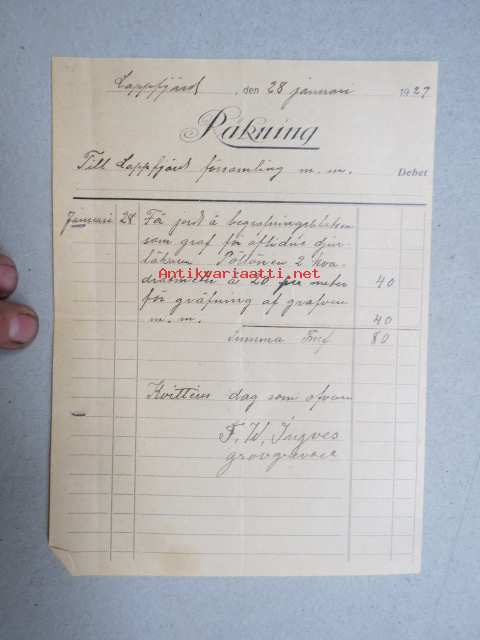 Lappfjärd, den 28 januari 1927
Räkning
Till Lappfjärd församling m. m. Debet
Januari 28 Få jord å begrafningsplatsen
som graf för aflidne djur-
läkaren Pöllönen 2 kva-
Antikvariaatti.net
dratmeter à 20 pr meter 40
för gräfning af grafven
m. m. 40
Summa Fmk 80
Kvitteras dag som ofvan
F. W. Ingves